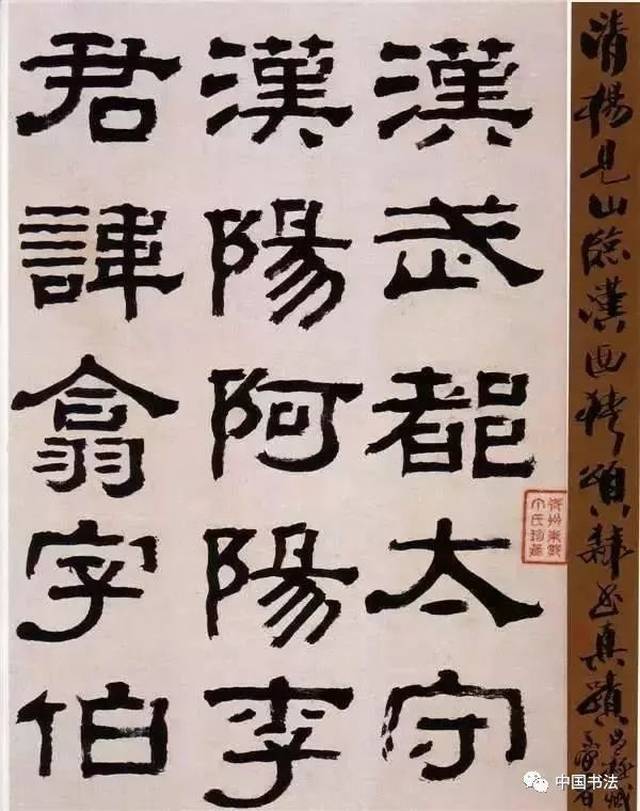 清楊見山臨漢西狹頌隸书真蹟
漢武都太守
漢陽阿陽李
君諱翕字伯
中国书法